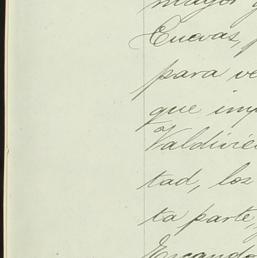 mayor
Cuevas,
para ve
que imp
Valdivie
tad, los
ta parte,
Escando